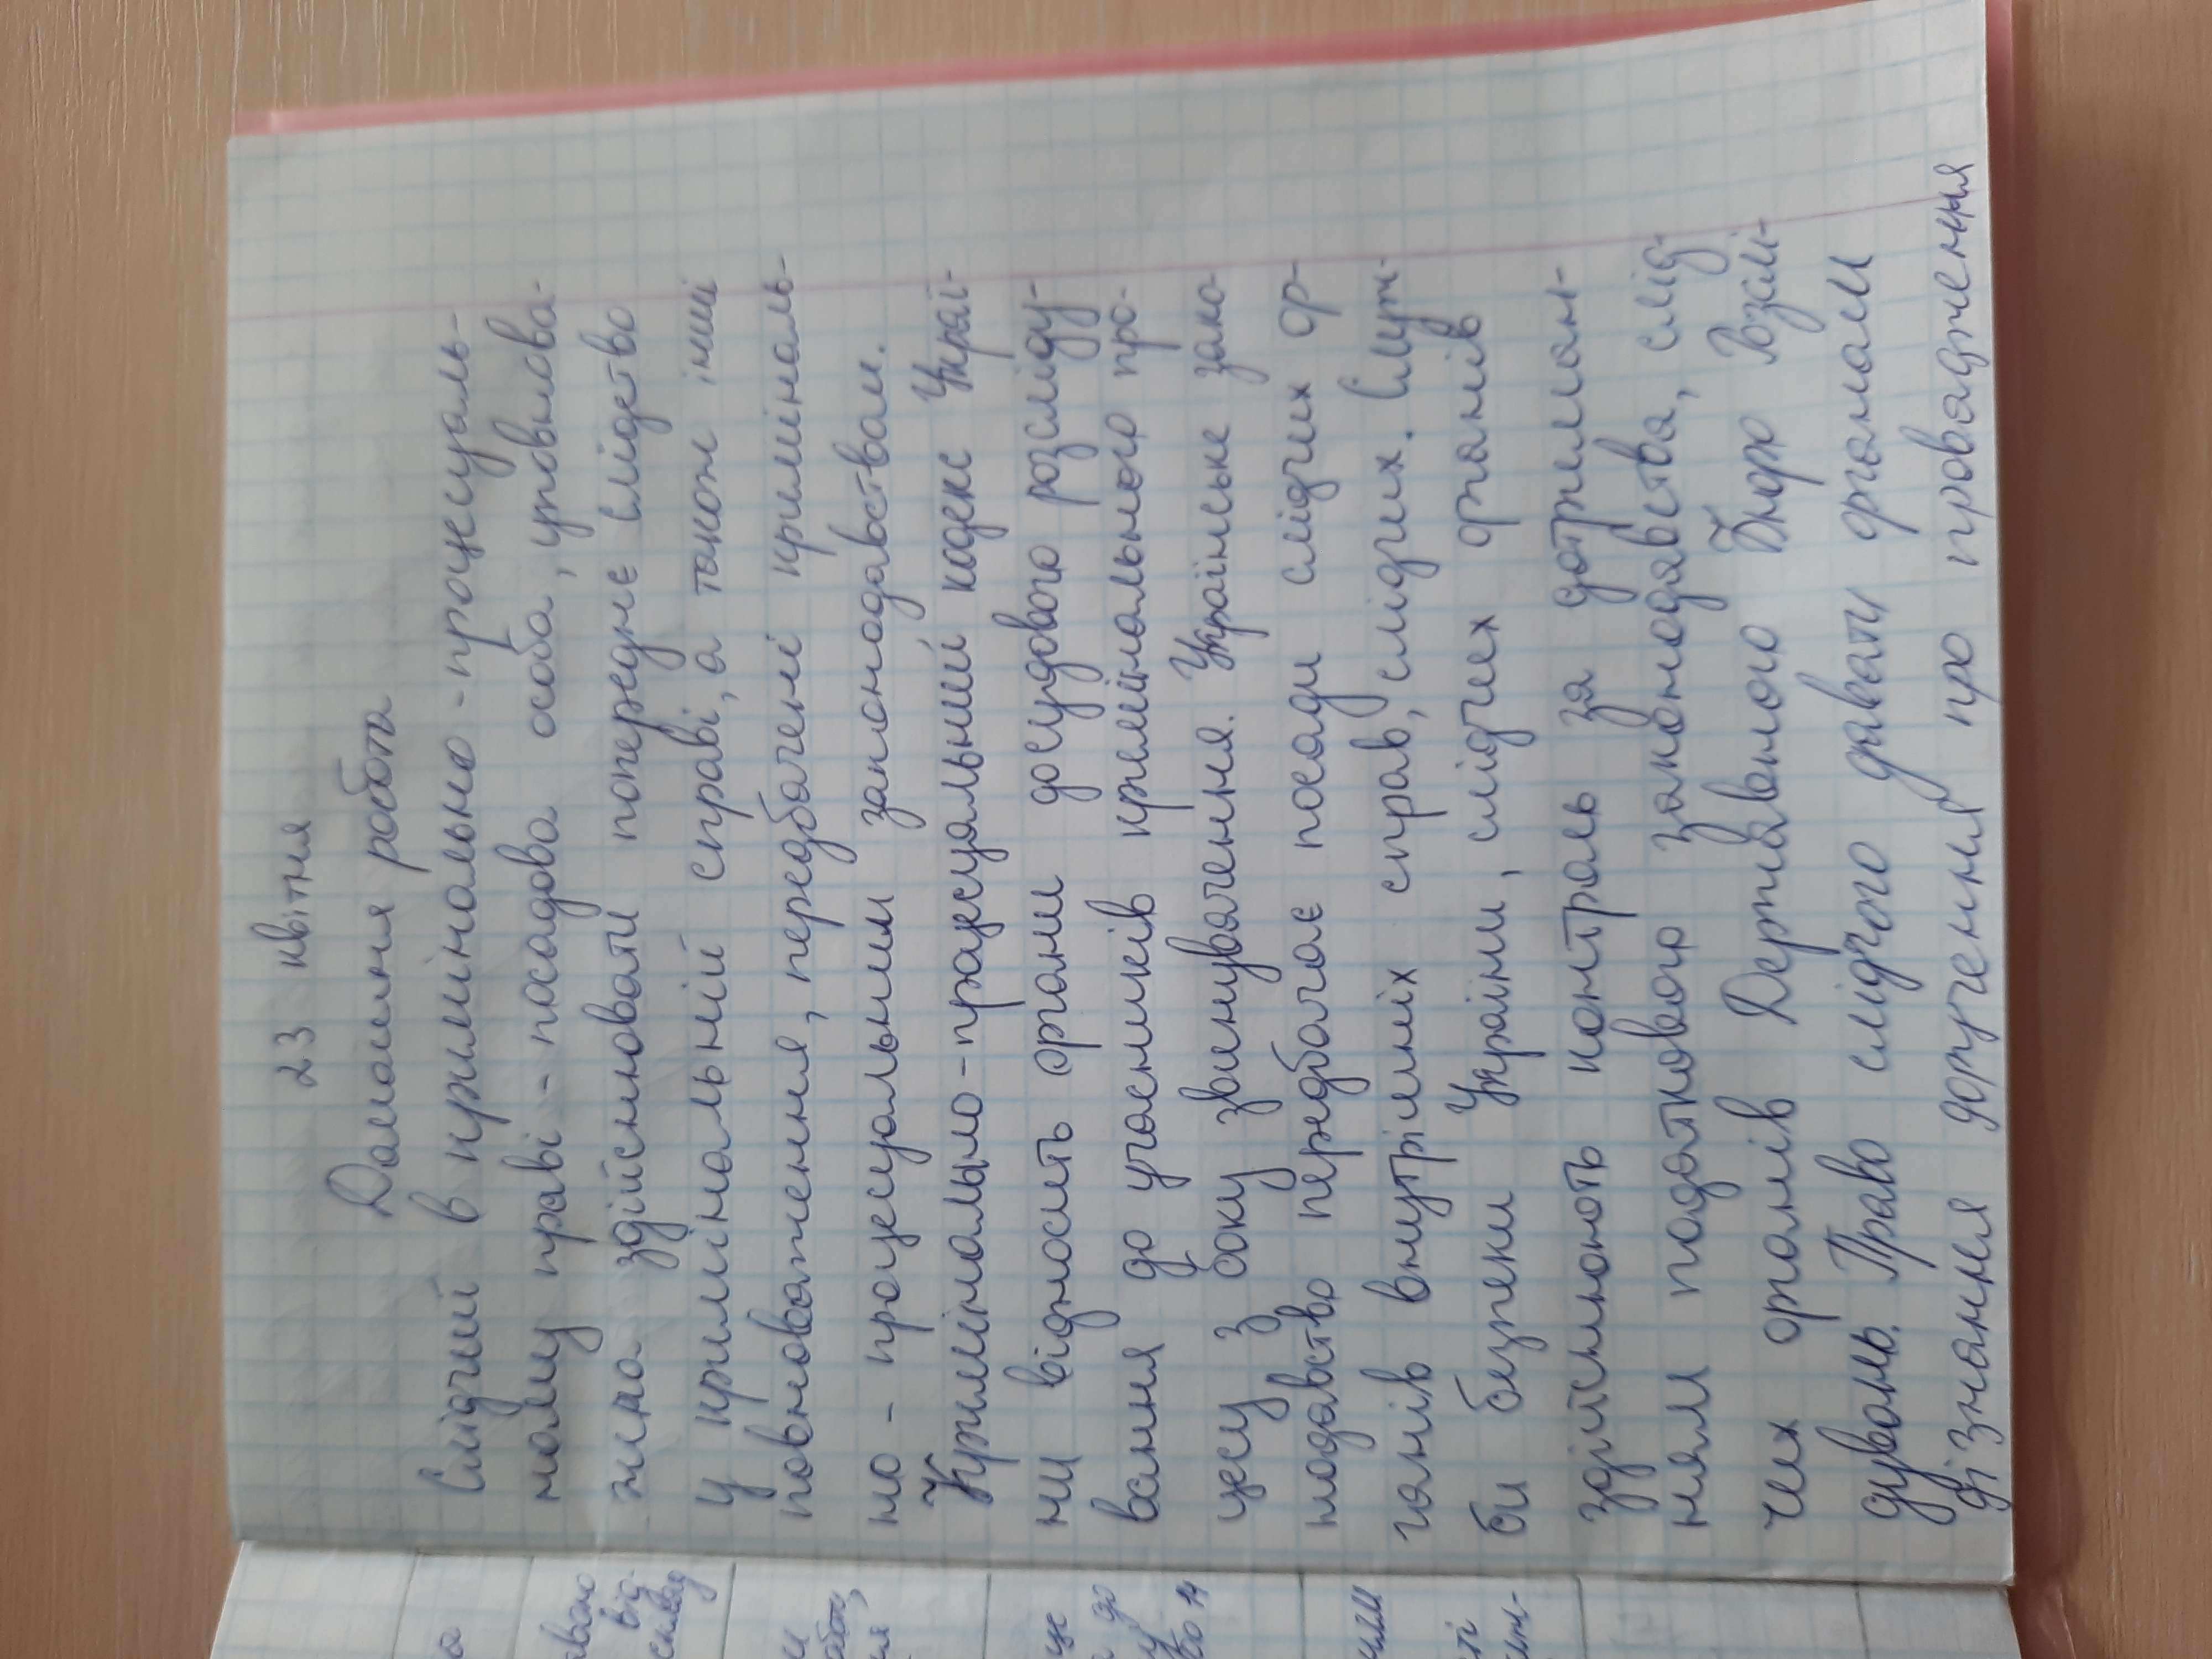 23 квітня
Домашня робота
Слідчий в кримінально-процесуаль-
ному праві - посадова особа, уповнова-
жена здійснювати попереднє слідство
у кримінальній справі, а також інші
повноваження, передбачені криміналь-
но-процесуальним законодавством.
Кримінально-процесуальний кодекс Украї-
ни відносить органи досудового розсліду-
вання до учасників кримінального про-
цесу з боку звинувачення. Українське зако-
нодавство передбачає посади слідчих ор-
ганів внутрішніх справ, слідчих. Служ-
би безпеки України, слідчих органів
здійснюють контроль за дотриман-
ням податкового законодавства, слід-
чих органів Державного Бюро Розслі-
дувань. Право слідчого давати органам
дізнання доручення про провадження